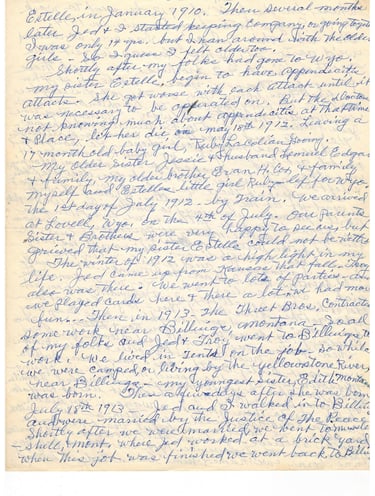 Estelle, in January 1910. Then several months
later Jed & I started keeping company, or going together
I was only 14 yrs. but I ran around with the older
girls - so I guess I felt older too.
Shortly after my folks had gone to Wyo.
my sister Estelle begin to have appendicitis
attacks. She got worse with each attack until it
was necessary to be operated on. But the doctors
not knowing much about appendicitis at that time
& Place, let her die on May 10th 1912. Leaving a
17 month old baby girl, Ruby
My older sister Jessie & Husband Lemuel Edgar
& family, my older brother Evan H. Cox, & family
myself and Estelles little girl Ruby left for Wyo.
the 1st day of July 1912 - by Train. We arrived
at Lovell, Wyo. on the 4th of July. Our Parents
Sister & Brothers were very happy to see us, but
grieved that my sister Estelle could not be with us
The winter of 1912 was a high light in my
life. Jed came up from Kansas that fall. Troy
also was there. We went to lots of parties - &
we played cards here & there a lot. We had more
fun. - Then in 1913 - The Threet Bros. Contractors
some work near Billings, Montana. So all
of my folks and Jed & Troy went to Billings to
work. We lived in Tents on the job, so while
we were camped or living by the Yellowstone River,
near Billings - my youngest sister, Edith Montana
was born. Then a few days after she was born
July 18th 1913 - Jed and I walked in to Billings
and were married by the Justice of The Peace
Shortly after we were married we went to
Mont, where Jed worked at a brick yard
when this job was finished we went back to Billings